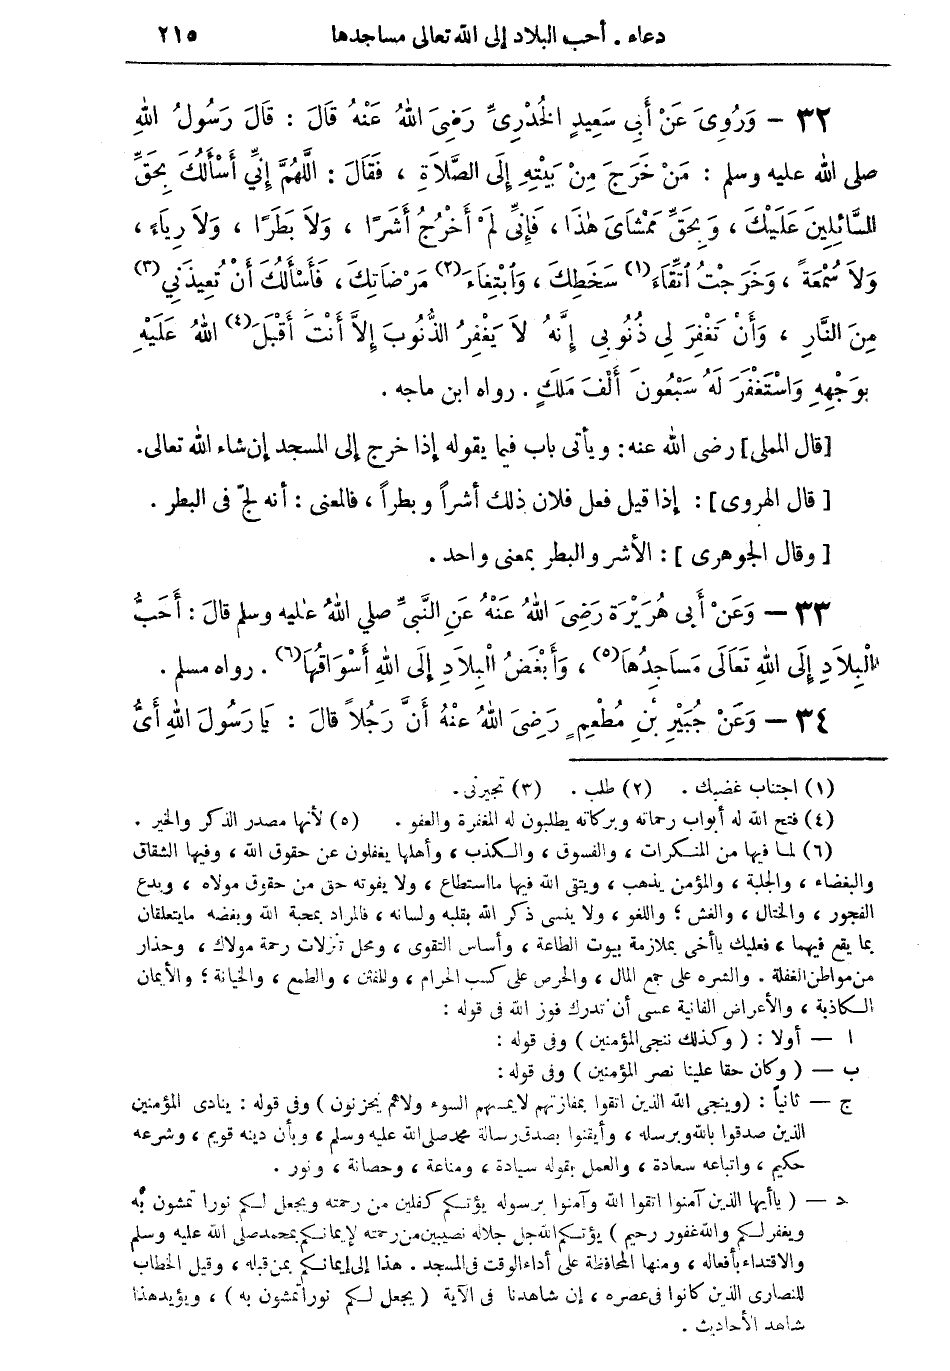 دعاء . أحب البلاد إلى الله تعالى مساجدها ٢١٥
٣٢ – وَرُوِىَ عَنْ أَبِي سَعِيدٍ الْخُدْرِىِّ رَضِىَ اللهُ عَنْهُ قَالَ : قَالَ رَسُولُ اللهِ
صلى الله عليه وسلم : مَنْ خَرَجَ مِنْ بَيْتِهِ إِلَى الصَّلَاةِ ، فَقَالَ : اللَّهُمَّ إِنِّي أَسْأَلُكَ بِحَقِّ
السَّائِلِينَ عَلَيْكَ ، وَبِحَقِّ مَمْشَاىَ هٰذَا ، فَإِنِّى لَمْ أَخْرُجْ أَشَرًا ، وَلاَ بَطَرًا ، وَلاَ رِيَاءً ،
وَلاَ سُمْعَةً ، وَخَرَجْتُ اتِّقَاءَ(١) سَخَطِكَ ، وَابْتِغَاءَ(٢) مَرْضَاتِكَ ، فَأَسْأَلُكَ أَنْ تُعِيذَنِي(٣)
مِنَ النَّارِ ، وَأَنْ تَغْفِرَ لِى ذُنُوبِى إِنَّهُ لاَ يَغْفِرُ الذُّنُوبَ إِلاَّ أَنْتَ أَقْبَلَ(٤) اللهُ عَلَيْهِ
بِوَجْهِهِ وَاسْتَغْفَرَ لَهُ سَبْعُونَ أَلْفَ مَلَكٍ . رواه ابن ماجه .
[قال المملى] رضى الله عنه: ويأتى باب فيما يقوله إذا خرج إلى المسجد إن شاء الله تعالى.
[ قال الهروى ] : إذا قيل فعل فلان ذلك أشراً وبطراً ، فالمعنى : أنه لجّ فى البطر .
[ وقال الجوهرى ] : الأشر والبطر بمعنى واحد .
٣٣ – وَعَنْ أَبِى هُرَيْرَةَ رَضِىَ اللهُ عَنْهُ عَنِ النَّبِىِّ صلي اللهُ عليه وسلم قَالَ : أَحَبُّ
الْبِلاَدِ إِلَى اللهِ تَعَالَى مَسَاجِدُهَا(٥) ، وَأَبْغَضُ الْبِلاَدِ إِلَى اللهِ أَسْوَاقُهَا(٦) . رواه مسلم .
٣٤ – وَعَنْ جُبَيْرِ بْنِ مُطْعِمٍ رَضِىَ اللهُ عَنْهُ أَنَّ رَجُلاً قالَ : يَا رَسُولَ اللهِ أَىُّ
(١) اجتناب غضبك . (٢) طلب . (٣) تجيرنى .
(٤) فتح الله له أبواب رحماته وبركاته يطلبون له المغفرة والعفو . (٥) لأنها مصدر الذكر والخير .
(٦) لما فيها من المنكرات ، والفسوق ، والكذب ، وأهلها يغفلون عن حقوق الله ، وفيها الشقاق
والبغضاء ، والجلبة ، والمؤمن يذهب ، ويتقى الله فيها ما استطاع ، ولا يفوته حق من حقوق مولاه ، ويدع
الفجور ، والختال ، والغش ؛ واللغو ، ولا ينسى ذكر الله بقلبه ولسانه ، فالمراد بمحبة الله وبغضه ما يتعلقان
بما يقع فيهما ، فعليك ياأخى بملازمة بيوت الطاعة ، وأساس التقوى ، ومحل تنزلات رحمة مولاك ، وحذار
من مواطن الغفلة . والشره على جمع المال ، والحرص على كسب الحرام ، وللفتن ، والطمع ، والخيانة ؛ والأيمان
الكاذبة ، والأعراض الفانية عسى أن تدرك فوز الله فى قوله :
ا — أولا : ( وكذلك ننجى المؤمنين ) وفى قوله :
ب — ( وكان حقا علينا نصر المؤمنين ) وفى قوله :
ج — ثانياً : (وينجى الله الذين اتقوا بمفازتهم لايمسهم السوء ولاهم يحزنون ) وفى قوله : ينادى المؤمنين
الذين صدقوا بالله وبرسله ، وأيقنوا بصدق رسالة محمد صلى الله عليه وسلم ، وبأن دينه قويم ، وشرعه
حكيم ، واتباعه سعادة ، والعمل بقوله سيادة ، ومناعة ، وحصانة ، ونور .
د — ( ياأيها الذين آمنوا اتقوا الله وآمنوا برسوله يؤتكم كفلين من رحمته ويجعل لكم نورا تمشون به
ويغفر لكم والله غفور رحيم ) يؤتكم الله جل جلاله نصيبين من رحمته لإيمانكم بمحمد صلى الله عليه وسلم
والاقتداء بأفعاله ، ومنها المحافظة على أداء الوقت فى المسجد . هذا إلى إيمانكم بمن قبله ، وقيل الخطاب
للنصارى الذين كانوا فى عصره ، إن شاهدنا فى الآية ( يجعل لكم نورا تمشون به ) ، ويؤيد هذا
شاهد الأحاديث .